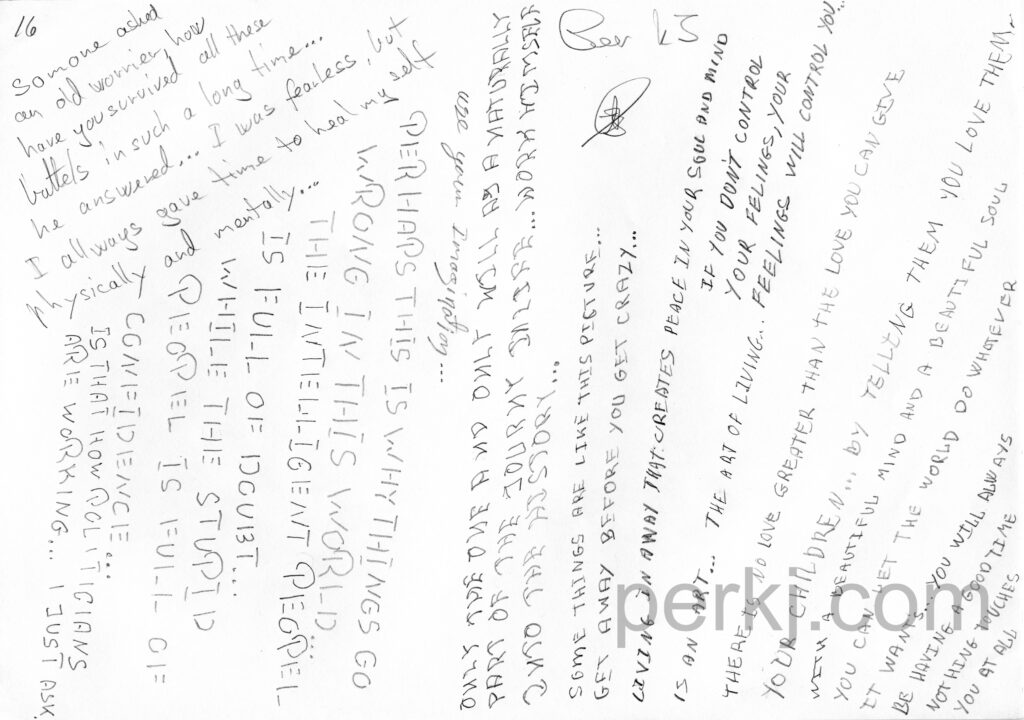 16
Somone asked
an old worrier, how
have you survived all these
battels in such a long time...
he answered... I was fearless, but
I allways gave time to heal my self
physically and mentally...
PERHAPS THIS IS WHY THINGS GO
WRONG IN THIS WORLD...
THE INTELLIGENT PEOPEL
IS FULL OF DOUBT...
WHILE THE STUPID
PEOPEL IS FULL OF
CONFIDENCE...
IS THAT HOW POLITICIANS
ARE WORKING... I JUST ASK.
use your Imagination...
ONLY THE ONE AND ONLY WILL AS A NATURALLY
PART OF THE JOURNY WORK HIMSELF
INTO THE HISTORY...
Per KJ
SOME THINGS ARE LIKE THIS PICTURE...
GET AWAY BEFORE YOU GET CRAZY...
LIVING IN A WAY THAT CREATES PEACE IN YOUR SOUL AND MIND
IS AN ART... THE ART OF LIVING...
IF YOU DON'T CONTROL
YOUR FEELINGS, YOUR
FEELINGS WILL CONTROL YOU...
THERE IS NO LOVE GREATER THAN THE LOVE YOU CAN GIVE
YOUR CHILDREN... BY TELLING THEM YOU LOVE THEM...
WITH A BEAUTIFUL MIND AND A BEAUTIFUL SOUL
YOU CAN LET THE WORLD DO WHATEVER
IT WANTS... YOU WILL ALWAYS
BE HAVING A GOOD TIME
NOTHING TOUCHES
YOU AT ALL
perkj.com